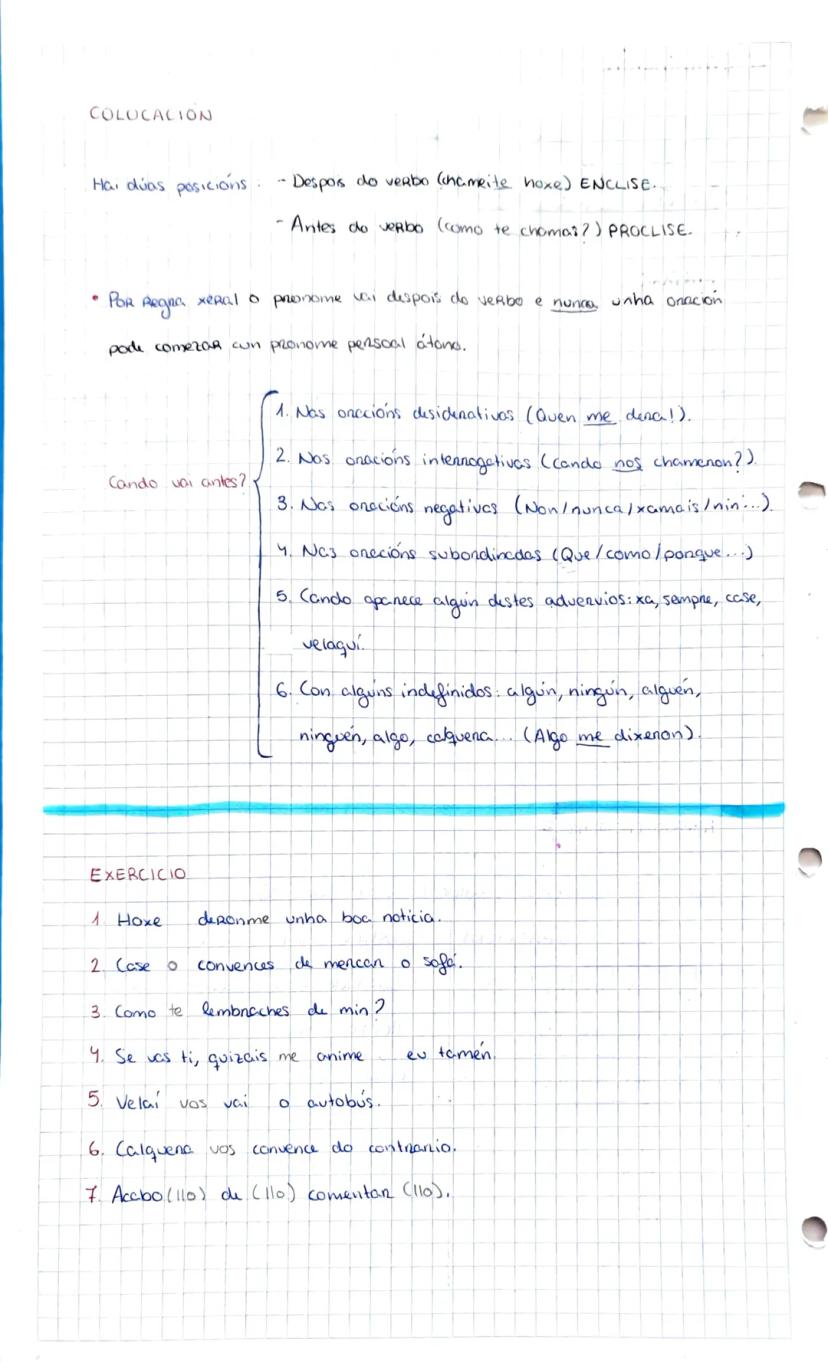 COLOCACIÓN
Hai dúas posicións: - Despois do verbo (chameite hoxe) ENCLISE.
- Antes do verbo (como te chamas?) PROCLISE.
• Por regra xeral o pronome vai despois do verbo e nunca unha oración
pode comezar cun pronome persoal átono.
Cando vai antes?
1. Nas oracións desiderativas (Quen me dera!).
2. Nas oracións interrogativas (cando nos chamaron?).
3. Nas oracións negativas (Non/nunca/xamais/nin...).
4. Nas oracións subordinadas (Que/como/porque...)
5. Cando aparece algún destes advervios: xa, sempre, case,
velaquí.
6. Con algúns indefinidos: algún, ningún, alguén,
ninguén, algo, calquera... (Algo me dixeron).
EXERCICIO
1. Hoxe deronme unha boa noticia.
2. Case o convences de mercar o sofá.
3. Como te lembraches de min?
4. Se vas ti, quizais me anime eu tamén.
5. Velaí vos vai o autobús.
6. Calquera vos convence do contrario.
7. Acabo (llo) de (llo) comentar (llo).